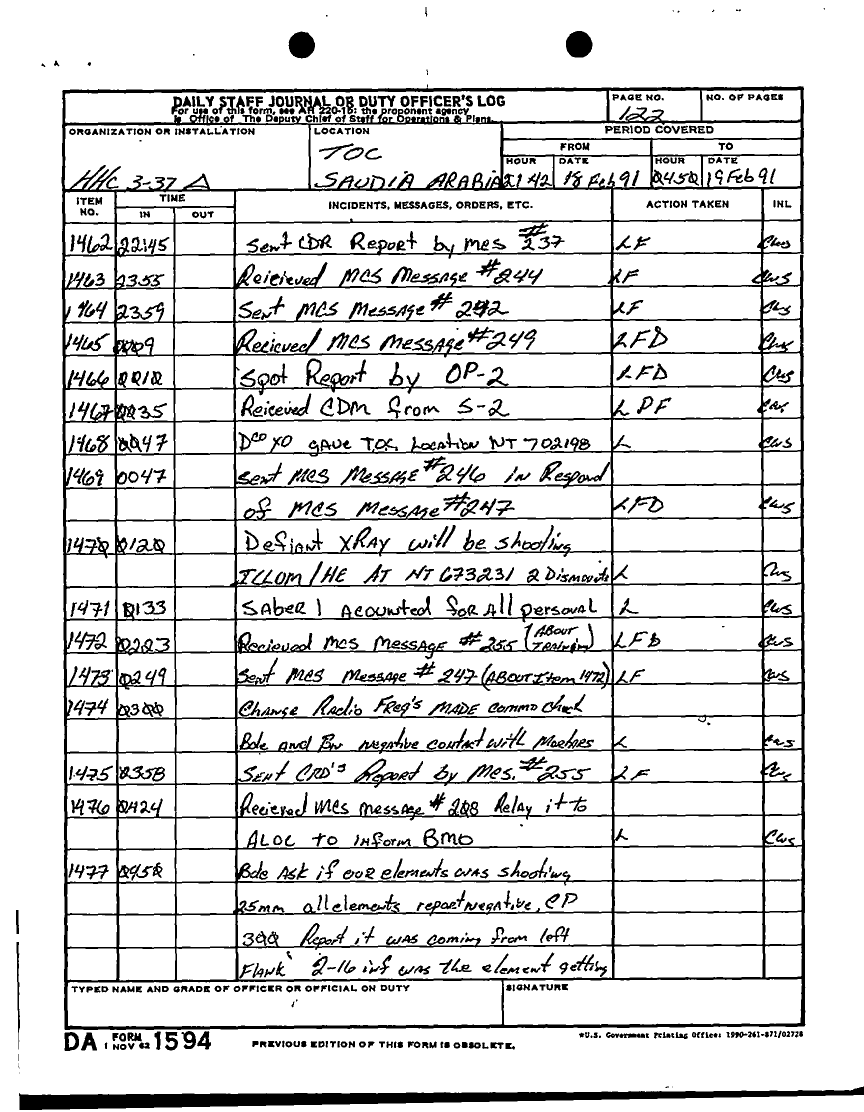 DAILY STAFF JOURNAL OR DUTY OFFICER'S LOG
For use of this form, see AR 220-15: the proponent agency
is Office of The Deputy Chief of Staff for Operations & Plans.
PAGE NO.
122
NO. OF PAGES
ORGANIZATION OR INSTALLATION
HHC 3-37 Δ
LOCATION
TOC
SAUDIA ARABIA
PERIOD COVERED
FROM TO
HOUR DATE HOUR DATE
2142 18 Feb 91 0450 19 Feb 91
ITEM NO. TIME IN OUT INCIDENTS, MESSAGES, ORDERS, ETC. ACTION TAKEN INL
1462 22:45 Sent CDR Report by mcs #237 LF CWS
1463 2355 Reicieved MCS Message #244 LF CWS
1464 2359 Sent MCS Message # 242 LF CWS
1465 0009 Recieved MCS Message #249 LFD CWS
1466 0010 Spot Report by OP-2 LFD CWS
1467 0035 Reiceved CDM from S-2 L DF CWS
1468 0047 Dco XO gave T.O.C. Location NT 702198 L CWS
1469 0047 Sent MCS Message #246 in Respond
of MCS Message #247 LFD CWS
1470 0120 Defiant XRAY will be shooting
ILLOM/HE AT NT 673231 2 Dismounts L CWS
1471 0133 SABER 1 Acounted for All personal L CWS
1472 0223 Recieved mcs message # 255 (ABOUT TRAINING) LFD CWS
1473 0249 Sent MCS Message # 247 (ABOUT Item 1472) LF CWS
1474 0300 Change Radio Freq's MADE commo check
Bde and Bn negative contact with Mortars L CWS
1475 0358 Sent CRD's Report by Mes. #255 LF CWS
1476 0424 Recieved MCS message # 208 Relay it to
ALOC to inform BMO L CWS
1477 0450 Bde Ask if our elements was shooting
25mm all elements report negative, CP
300 Report it was coming from left
Flank 2-16 inf was the element getting
TYPED NAME AND GRADE OF OFFICER OR OFFICIAL ON DUTY
SIGNATURE
DA FORM 1 NOV 62 1594
PREVIOUS EDITION OF THIS FORM IS OBSOLETE.
*U.S. Government Printing Office: 1990-261-871/02728